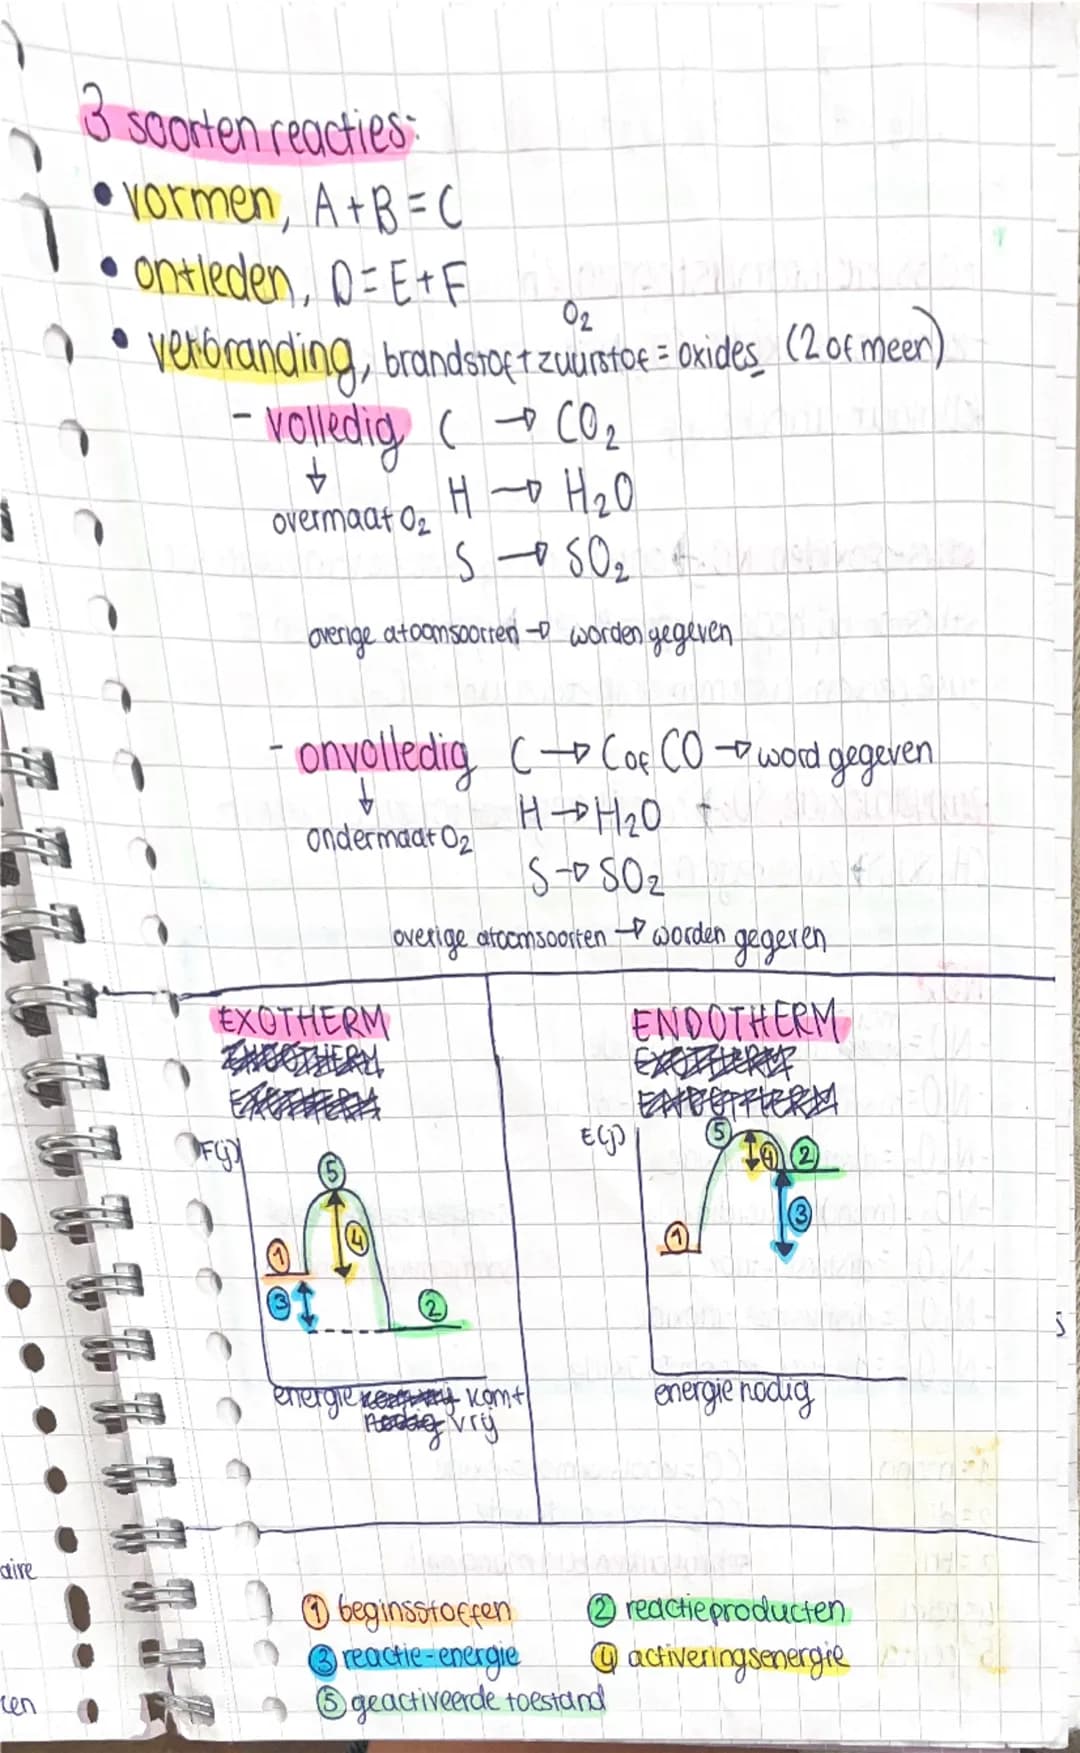 3 soorten reacties:
• vormen, A+B=C
• ontleden, D=E+F
O2
• verbranding, brandstof+zuurstof=oxides (2 of meer)
- volledig C → CO2
↓ H → H2O
overmaat O2
S → SO2
overige atoomsoorten → worden gegeven
- onvolledig C → C of CO → word gegeven
↓ H → H2O
ondermaat O2
S → SO2
overige atoomsoorten → worden gegeven
EXOTHERM
ENDOTHERM
E(j)
5
4
1
3
2
energie komt
vrij
E(j)
5
4
2
3
1
energie nodig
aire
1 beginsstoffen
2 reactieproducten
3 reactie-energie
4 activeringsenergie
5 geactiveerde toestand